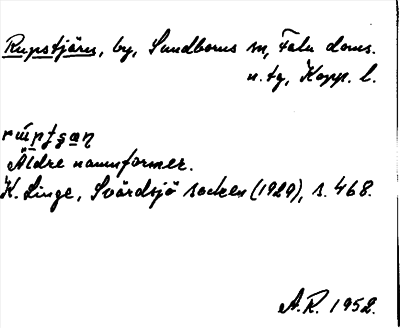 Rupstjärn, by, Sundborns sn, Falu doms.
n. tg, Kopp. l.
Äldre namnformer.
K. Linge, Svärdsjö socken (1929), s. 468.
A.R. 1952.